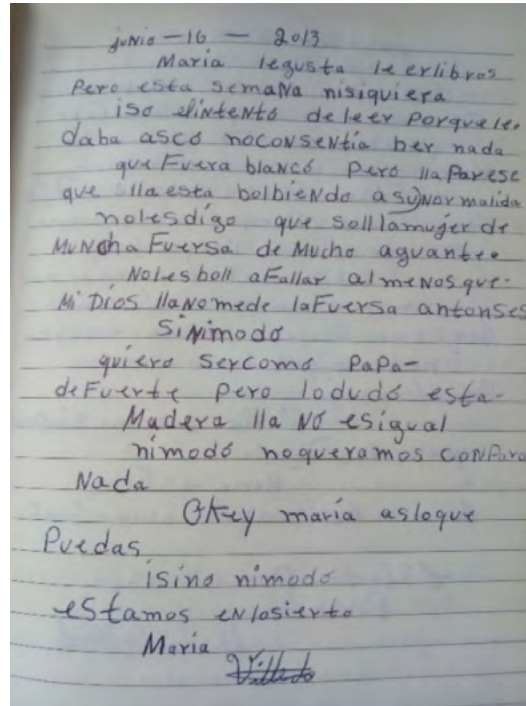 junio - 16 - 2013
María legusta leerlibros
Pero esta semana nisiquiera
iso elintento de leer porque le.
daba ascó noconsentía ber nada
que Fuera blancó pero lla parese
que lla esta bolbiendo asu normalida
nolesdígo que solllamujer de
Muncha Fuersa de Mucho aguante.
Nolesboll aFallar almenosque.
Mi Díos llanomede laFuersa antonses
Sinimodo
quiero sercomó PaPa-
deFuerte pero lodudó esta-
Madera lla nó esigual
nimodó noqueramos conpara
Nada
Okey maría asloque
Puedas
isino nimodo
estamos enlosierto
María